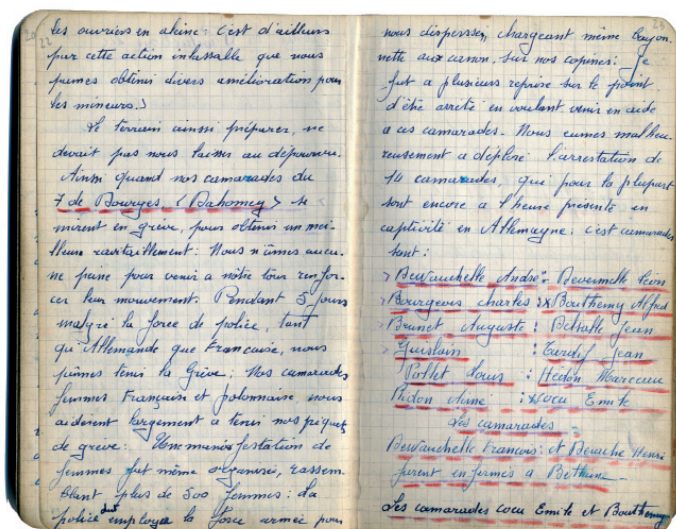 20
22
les ouvriers en aleine: c'est d'ailleurs
par cette action inlassable que nous
pumes obtenir divers amélioration pour
les mineurs.)
Le terrain ainsi préparer, ne
devait pas nous laisser au dépourvu.
Ainsi quand nos camarades du
7 de Bourges (Dahomey) se
mirent en grève, pour obtenir un meil-
lleur ravitaillement: Nous n'ûmes aucu-
ne peine pour venir a nôtre tour renfor-
cer leur mouvement. Pendant 5 jours
malgré la force de police, tant
qu'Allemande que Francaise, nous
pûmes tenir la Grève: Nos camarades
femmes Française et polonnaise, nous
aidèrent largement a tenir nos piquets
de grève: Une manisfestation de
femmes fut même organisée, rassem-
blant plus de 500 femmes: La
police dut employer la force armée pour
nous disperser, chargeant même bayon-
nette aux canon, sur nos copines: Je
fut a plusieurs reprise sur le point
d'être arrêté en voulant venir en aide
a ces camarades. Nous eumes malheu-
reusement a déploré l'arrestation de
14 camarades, qui pour la plupart
sont encore a l'heure présente en
captivité en Allemagne: c'est camarades
sont:
> Dewanchelle André: Devermelle Léon
> Bourgeois charles: x Barthemy Alfred
> Brunet Auguste: Jean
> Guislain: Tardif Jean
Pollet Louis: Hédon Marceau
Phidon Aimé: x Cocu Emile
Les camarades
Dewanchelle Francois: et Henri
furent enfermés a Béthune.
Les camarades cocu Emile et Bouthemy